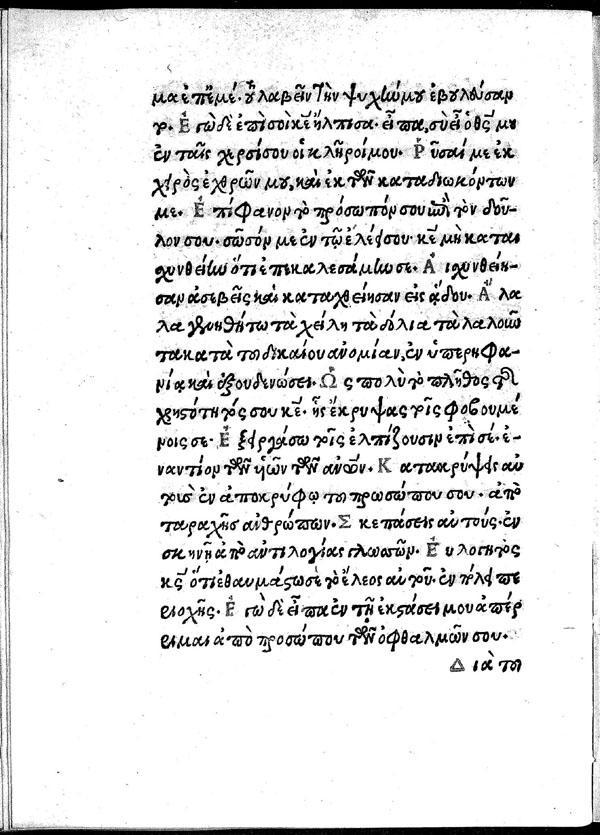 μα ἐπ' ἐμέ· τοῦ λαβεῖν τὴν ψυχήν μου ἐβουλεύσαν
το. Ἐγὼ δὲ ἐπὶ σοὶ κε ἤλπισα· εἶπα, σὺ εἶ ὁ θς μου
ἐν ταῖς χερσί σου οἱ κλῆροί μου. Ῥῦσαί με ἐκ
χειρὸς ἐχθρῶν μου, καὶ ἐκ τῶν καταδιωκόντων
με. Ἐπίφανον τὸ πρόσωπόν σου ἐπὶ τὸν δοῦ-
λον σου· σῶσόν με ἐν τῷ ἐλέει σου· κε μὴ καται
σχυνθείην ὅτι ἐπεκαλεσάμην σε. Αἰσχυνθείη-
σαν ἀσεβεῖς καὶ καταχθείησαν εἰς ᾅδου. Ἄλα
λα γενηθήτω τὰ χείλη τὰ δόλια τὰ λαλοῦν
τα κατὰ τοῦ δικαίου ἀνομίαν, ἐν ὑπερηφα-
νίᾳ καὶ ἐξουδενώσει. Ὡς πολὺ τὸ πλῆθος τῆς
χρηστότητός σου κε· ἧς ἔκρυψας τοῖς φοβουμέ
νοις σε· Ἐξειργάσω τοῖς ἐλπίζουσιν ἐπὶ σέ· ἐ-
ναντίον τῶν υἱῶν τῶν ανων. Κατακρύψεις αὐ
τοὺς ἐν ἀποκρύφῳ τοῦ προσώπου σου· ἀπὸ
ταραχῆς ἀνθρώπων. Σκεπάσεις αὐτούς· ἐν
σκηνῇ ἀπὸ ἀντιλογίας γλωσσῶν. Εὐλογητὸς
κς ὅτι ἐθαυμάστωσε τὸ ἔλεος αὐτοῦ· ἐν πόλει πε
ριοχῆς. Ἐγὼ δὲ εἶπα ἐν τῇ ἐκστάσει μου ἀπέρ
ριμαι ἀπὸ προσώπου τῶν ὀφθαλμῶν σου.
Διὰ τοῦ